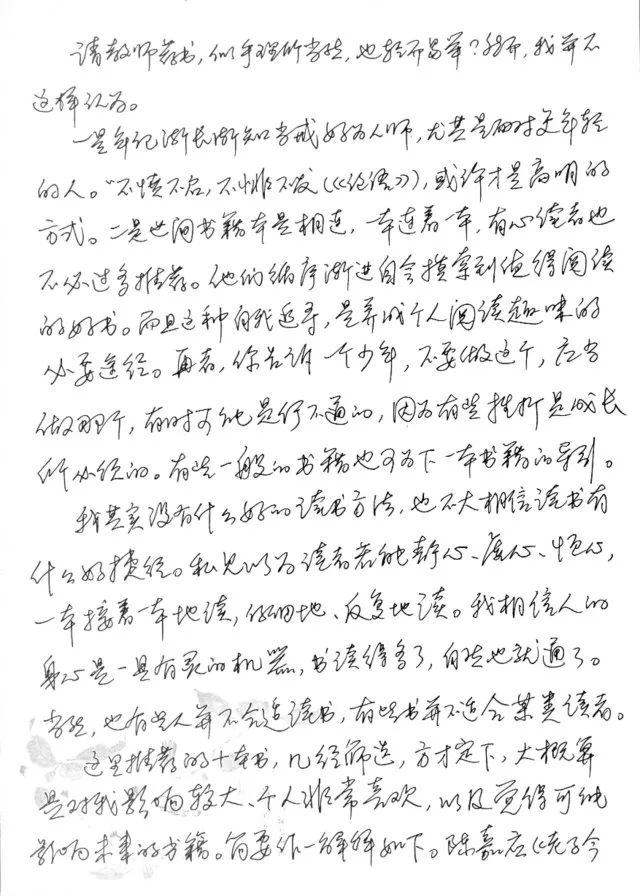 请教师荐书，似乎理所当然，也轻而易举？然而，我并不
这样认为。
一是年纪渐长渐知当戒好为人师，尤其是面对更年轻
的人。“不愤不启，不悱不发（《论语》），或许才是高明的
方式。二是世间书籍本是相连，一本连着一本，有心读者也
不必过多推荐。他们循序渐进自会摸索到值得阅读
的好书。而且这种自我追寻，是养成个人阅读趣味的
必要途径。再者，你告诉一个少年，不要做这个，应当
做那个，有时可能是行不通的，因为有些挫折是成长
所必须的。有些一般的书籍也可为下一本书籍的导引。
我其实没有什么好的读书方法，也不大相信读书有
什么好捷径。私见以为读者若能静心、虚心、恒心，
一本接着一本地读，仔细地、反复地读。我相信人的
身心是一具有灵的机器，书读得多了，自然也就通了。
当然，也有些人并不合适读书，有些书并不适合某类读者。
这里推荐的十本书，几经筛选，方才定下，大概算
是对我影响较大、个人非常喜欢，以及觉得可能
影响未来的书籍。简要作一解释如下。陈嘉应《老子今